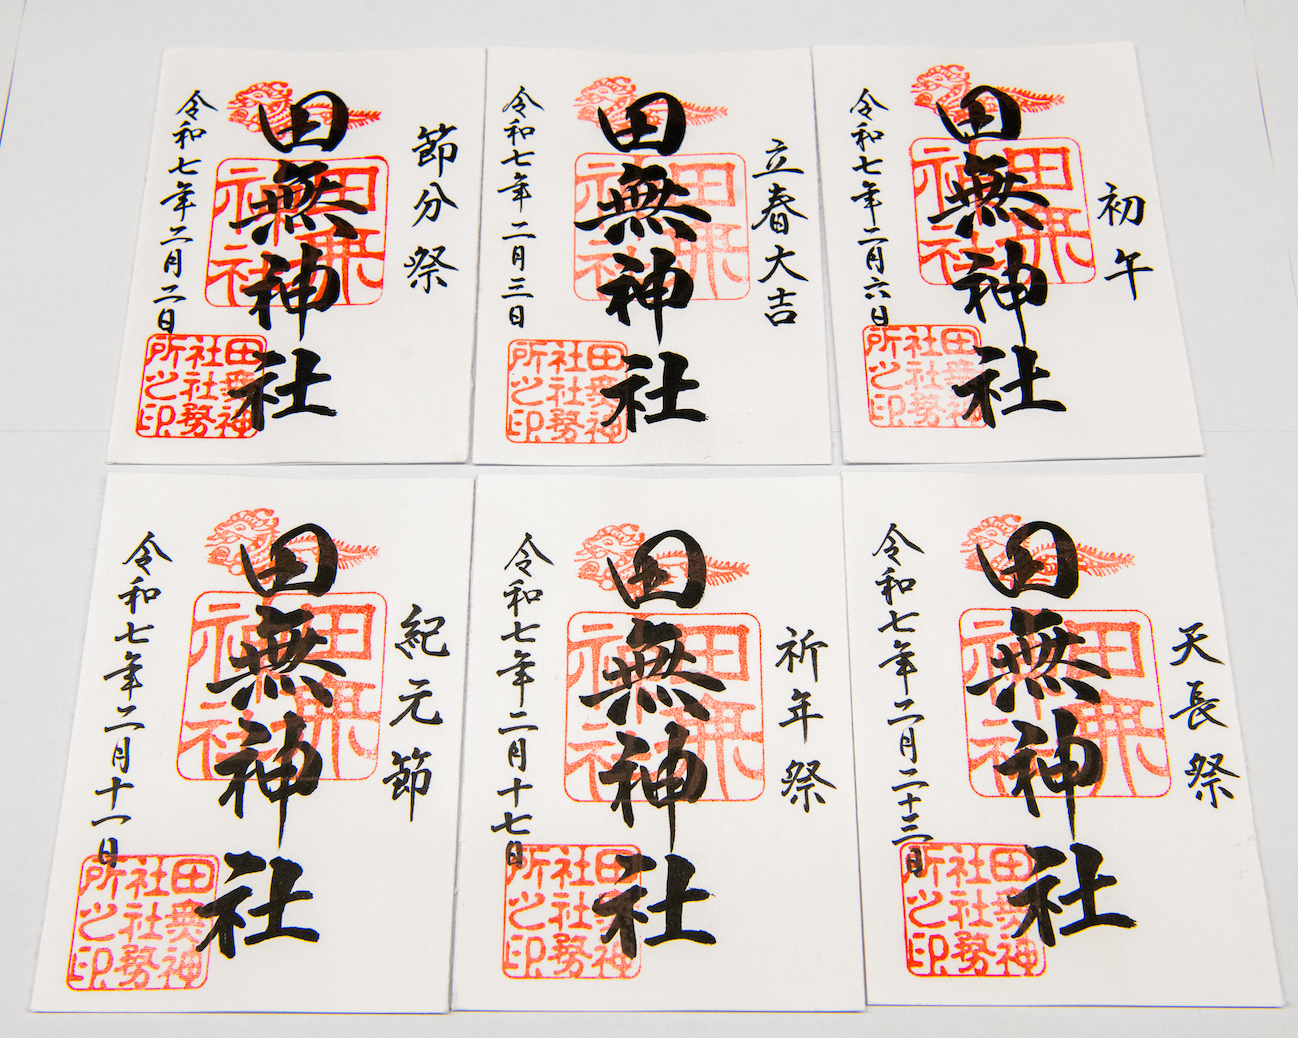 節分祭
田無神社
令和七年二月二日
田無神社
田無神社社務所之印
立春大吉
田無神社
令和七年二月三日
田無神社
田無神社社務所之印
初午
田無神社
令和七年二月六日
田無神社
田無神社社務所之印
紀元節
田無神社
令和七年二月十一日
田無神社
田無神社社務所之印
祈年祭
田無神社
令和七年二月十七日
田無神社
田無神社社務所之印
天長祭
田無神社
令和七年二月二十三日
田無神社
田無神社社務所之印